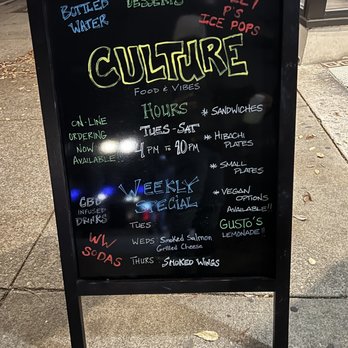 BOTTLED WATER
DESSERTS
P'S
ICE POPS
CULTURE
FOOD & VIBES
ON-LINE
ORDERING
NOW
AVAILABLE!!
HOURS
TUES-SAT
4 PM TO 10PM
* SANDWICHES
* HIBACHI
PLATES
* SMALL
PLATES
* VEGAN
OPTIONS
AVAILABLE!!
CBD
INFUSED
DRINKS
WW
SODAS
WEEKLY
SPECIAL
TUES
WEDS SMOKED SALMON
GRILLED CHEESE
THURS SMOKED WINGS
GUSTO'S
LEMONADE!!